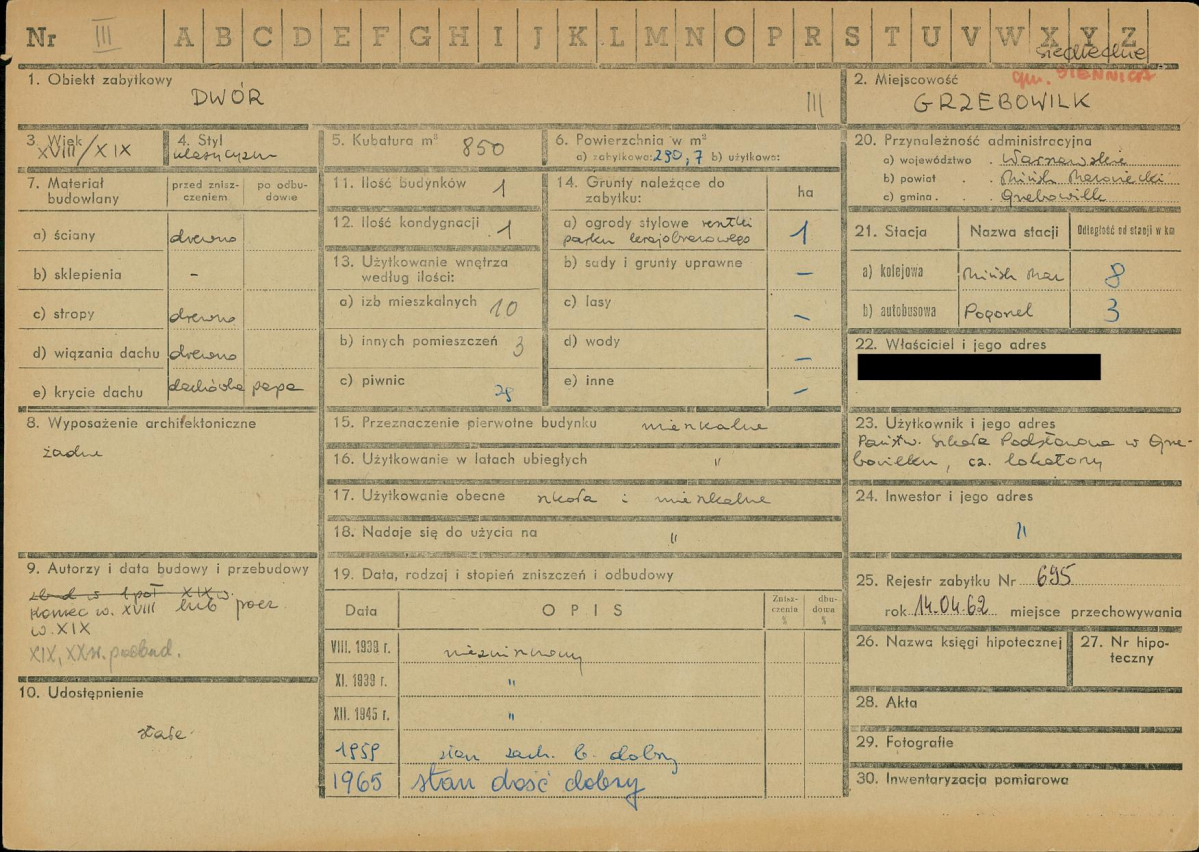 Nr III A B C D E F G H I J K L M N O P R S T U V W X Y Z
siedleckie
1. Obiekt zabytkowy
DWÓR
III
2. Miejscowość gm. SIENNICA
GRZEBOWILK
3. Wiek
XVIII/XIX
4. Styl
klasycyzm
5. Kubatura m³ 850
6. Powierzchnia w m²
a) zabytkowa: 290,7 b) użytkowa:
7. Materiał budowlany
przed zniszczeniem
po odbudowie
a) ściany drewno
b) sklepienia –
c) stropy drewno
d) wiązania dachu drewno
e) krycie dachu dachówka papa
8. Wyposażenie architektoniczne
żadne
9. Autorzy i data budowy i przebudowy
zbud. w 1 poł XIX w.
koniec w. XVIII lub pocz.
w. XIX
XIX, XX w. przebud.
10. Udostępnienie
stałe
11. Ilość budynków 1
12. Ilość kondygnacji 1
13. Użytkowanie wnętrza
według ilości:
a) izb mieszkalnych 10
b) innych pomieszczeń 3
c) piwnic
14. Grunty należące do
zabytku:
ha
a) ogrody stylowe resztki
parku krajobrazowego 1
b) sady i grunty uprawne –
c) lasy –
d) wody –
e) inne –
15. Przeznaczenie pierwotne budynku mieszkalne
16. Użytkowanie w latach ubiegłych "
17. Użytkowanie obecne szkoła i mieszkalne
18. Nadaje się do użycia na "
19. Data, rodzaj i stopień zniszczeń i odbudowy
Data
OPIS
Zniszczenia %
dbudowa %
VIII. 1939 r. niezniszczony
XI. 1939 r. "
XII. 1945 r. "
1959 stan zach. b. dobry
1965 stan dość dobry
20. Przynależność administracyjna
a) województwo . Warszawskie
b) powiat . . Mińsk Mazowiecki
c) gmina . . Grzebowilk
21. Stacja
Nazwa stacji
Odległość od stacji w km
a) kolejowa Mińsk Maz 8
b) autobusowa Pogorzel 3
22. Właściciel i jego adres
23. Użytkownik i jego adres
Państw. Szkoła Podstawowa w Grze-
bowilku, cz. lokatorzy
24. Inwestor i jego adres
"
25. Rejestr zabytku Nr 695
rok 14.04.62 miejsce przechowywania
26. Nazwa księgi hipotecznej
27. Nr hipo-
teczny
28. Akta
29. Fotografie
30. Inwentaryzacja pomiarowa